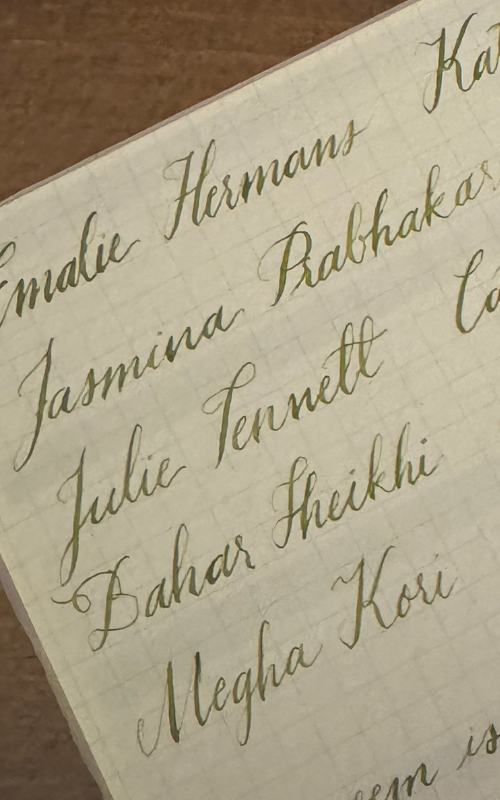 Emalie Hermans Kat
Jasmina Prabhakar
Julie Tennett Ca
Bahar Sheikhi
Megha Kori
eem is